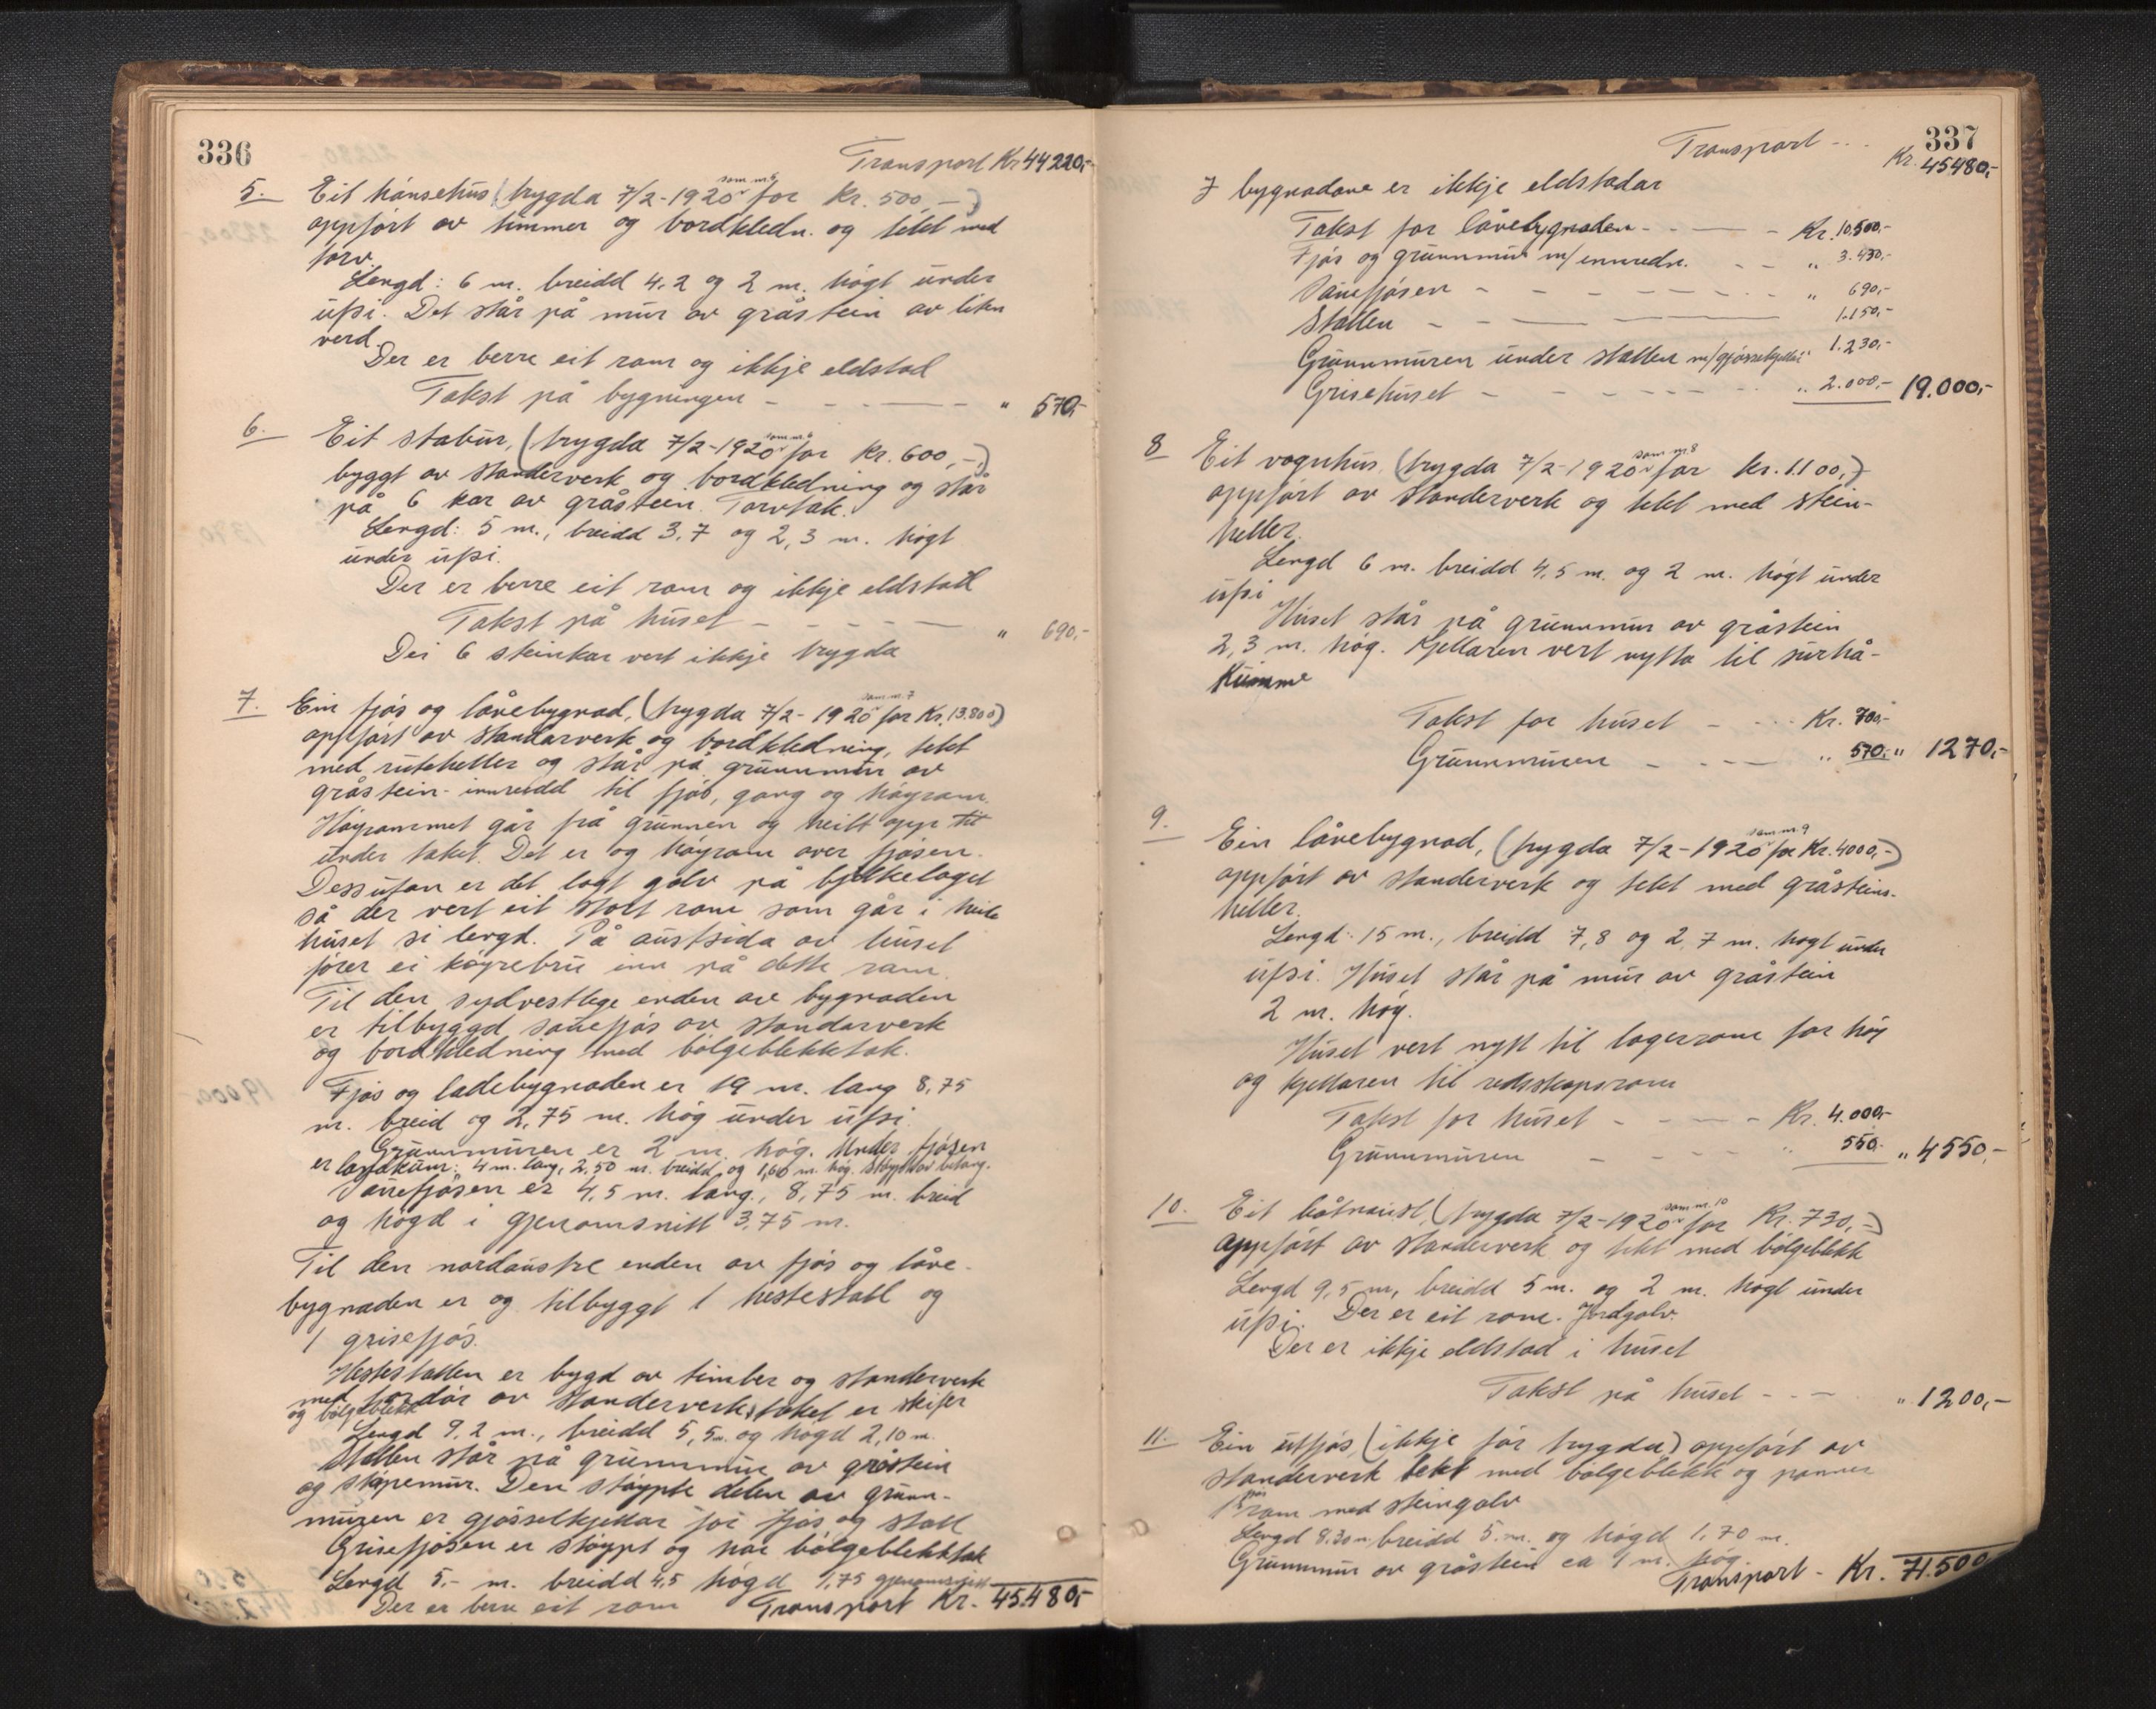 336
Transport Kr 44220,-
5. Eit hønsehus (trygda 7/2-1920 som nr. 5 for Kr. 500,-)
oppført av timmer og bordkledn. og tekt med
torv.
Lengd: 6 m. breidd 4,2 og 2 m. høgt under
upsi. Det står på mur av gråstein av liten
verd.
Der er berre eit rom og ikkje eldstad
Takst på bygningen - - - " 570,-
6. Eit stabur, (trygda 7/2-1920 som nr. 6 for Kr. 600,-)
byggt av standerverk og bordkledning og står
på 6 kar av gråstein. Torvtak.
Lengd: 5 m., breidd 3,7 og 2,3 m. høgt
under upsi.
Der er berre eit rom og ikkje eldstad
Takst på huset - - - " 690,-
Dei 6 steinkar vert ikkje trygda
7. Ein fjøs og låvebygnad, (trygda 7/2-1920 som nr. 7 for Kr. 13.800)
oppført av standarverk og bordkledning, tekt
med ruteheller og står på grunnmur av
gråstein - innreidd til fjøs, gang og høyrom.
Høyrommet går frå grunnen og heilt opp til
under taket. Det er og høyrom over fjøsen.
Dessutan er det lagt golv på bjelkelaget
så der vert eit stort rom som går i heile
huset si lengd. På austsida av huset
fører ei køyrebru inn på dette rom.
Til den sydvestlege enden av bygnaden
er tilbyggd sauefjøs av standarverk
og bordkledning med bølgeblekktak.
Fjøs og ladebygnaden er 19 m. lang 8,75
m. breid og 2,75 m. høg under upsi.
Grunnmuren er 2 m. høg. Under fjøsen
er landkum: 4 m. lang, 2,50 m. breidd og 1,60 m. høg. Støypt av betong.
Sauefjøsen er 4,5 m. lang, 8,75 m. breid
og høgd i gjenomsnitt 3,75 m.
Til den nordaustre enden av fjøs og låve-
bygnaden er og tilbyggt 1 hestestall og
1 grisefjøs.
Hestestallen er bygd av timber og standerverk
med fordør av standerverk, taket er skifer
og bølgeblekk
Lengd 9,2 m., breidd 5,5 m. og høgd 2,10 m.
Stallen står på grunnmur av gråstein
og støpemur. Den støypte delen av grunn-
muren er gjødselkjellar for fjøs og stall
Grisefjøsen er støypt og har bølgeblekktak
Lengd 5,- m. breidd 4,5 høgd 1,75 gjenomsnitt
Der er berre eit rom Transport Kr. 45480,-
337
Transport - - Kr. 45480,-
I bygnadane er ikkje eldstadar
Takst for låvebygnaden - - - Kr. 10.500,-
Fjøs og grunnmur m/ innredn. - - " 3.430,-
Sauefjøsen - - - " 690,-
Stallen - - - 1.150,-
Grunnmuren under stallen m/gjødselkjellar " 1.230,-
Grisehuset - - - " 2.000,- 19.000,-
8 Eit vognhus (trygda 7/2-1920 som nr. 8 for kr. 1100,-)
oppført av standerverk og tekt med stein-
heller.
Lengd 6 m. breidd 4,5 m. og 2 m. høgt under
upsi
Huset står på grunnmur av gråstein
2,3 m. høg. Kjellaren vert nytta til surhå-
kumme
Takst for huset - - - Kr. 700,-
Grunnmuren - - - " 570,- " 1270,-
9. Ein låvebygnad, (trygda 7/2-1920 som nr. 9 for Kr. 4000,-)
oppført av standerverk og tekt med gråsteins-
heller.
Lengd: 15 m., breidd 7,8 og 2,7 m. høgt under
upsi. Huset står på mur av gråstein
2 m. høg.
Huset vert nytt til lagerrom for høy
og kjellaren til redskapsrom
Takst for huset - - - Kr. 4.000,-
Grunnmuren - - - " 550,- " 4550,-
10. Eit båtnaust, (trygda 7/2-1920 som nr. 10 for Kr. 730,-)
oppført av standerverk og tekt med bølgeblekk
Lengd 9,5 m, breidd 5 m. og 2 m. høgt under
upsi. Der er eit rom. Jordgolv.
Der er ikkje eldstad i huset
Takst på huset - - - " 1200,-
11. Ein utfjøs, (ikkje før trygda) oppført av
standerverk tekt med bølgeblekk og panner
1 rom med steingolv
Lengd 8.30 m breidd 5. m. og høgd 1,70 m.
Grunnmur av gråstein ca 1 m. høg.
Transport - Kr. 71.500